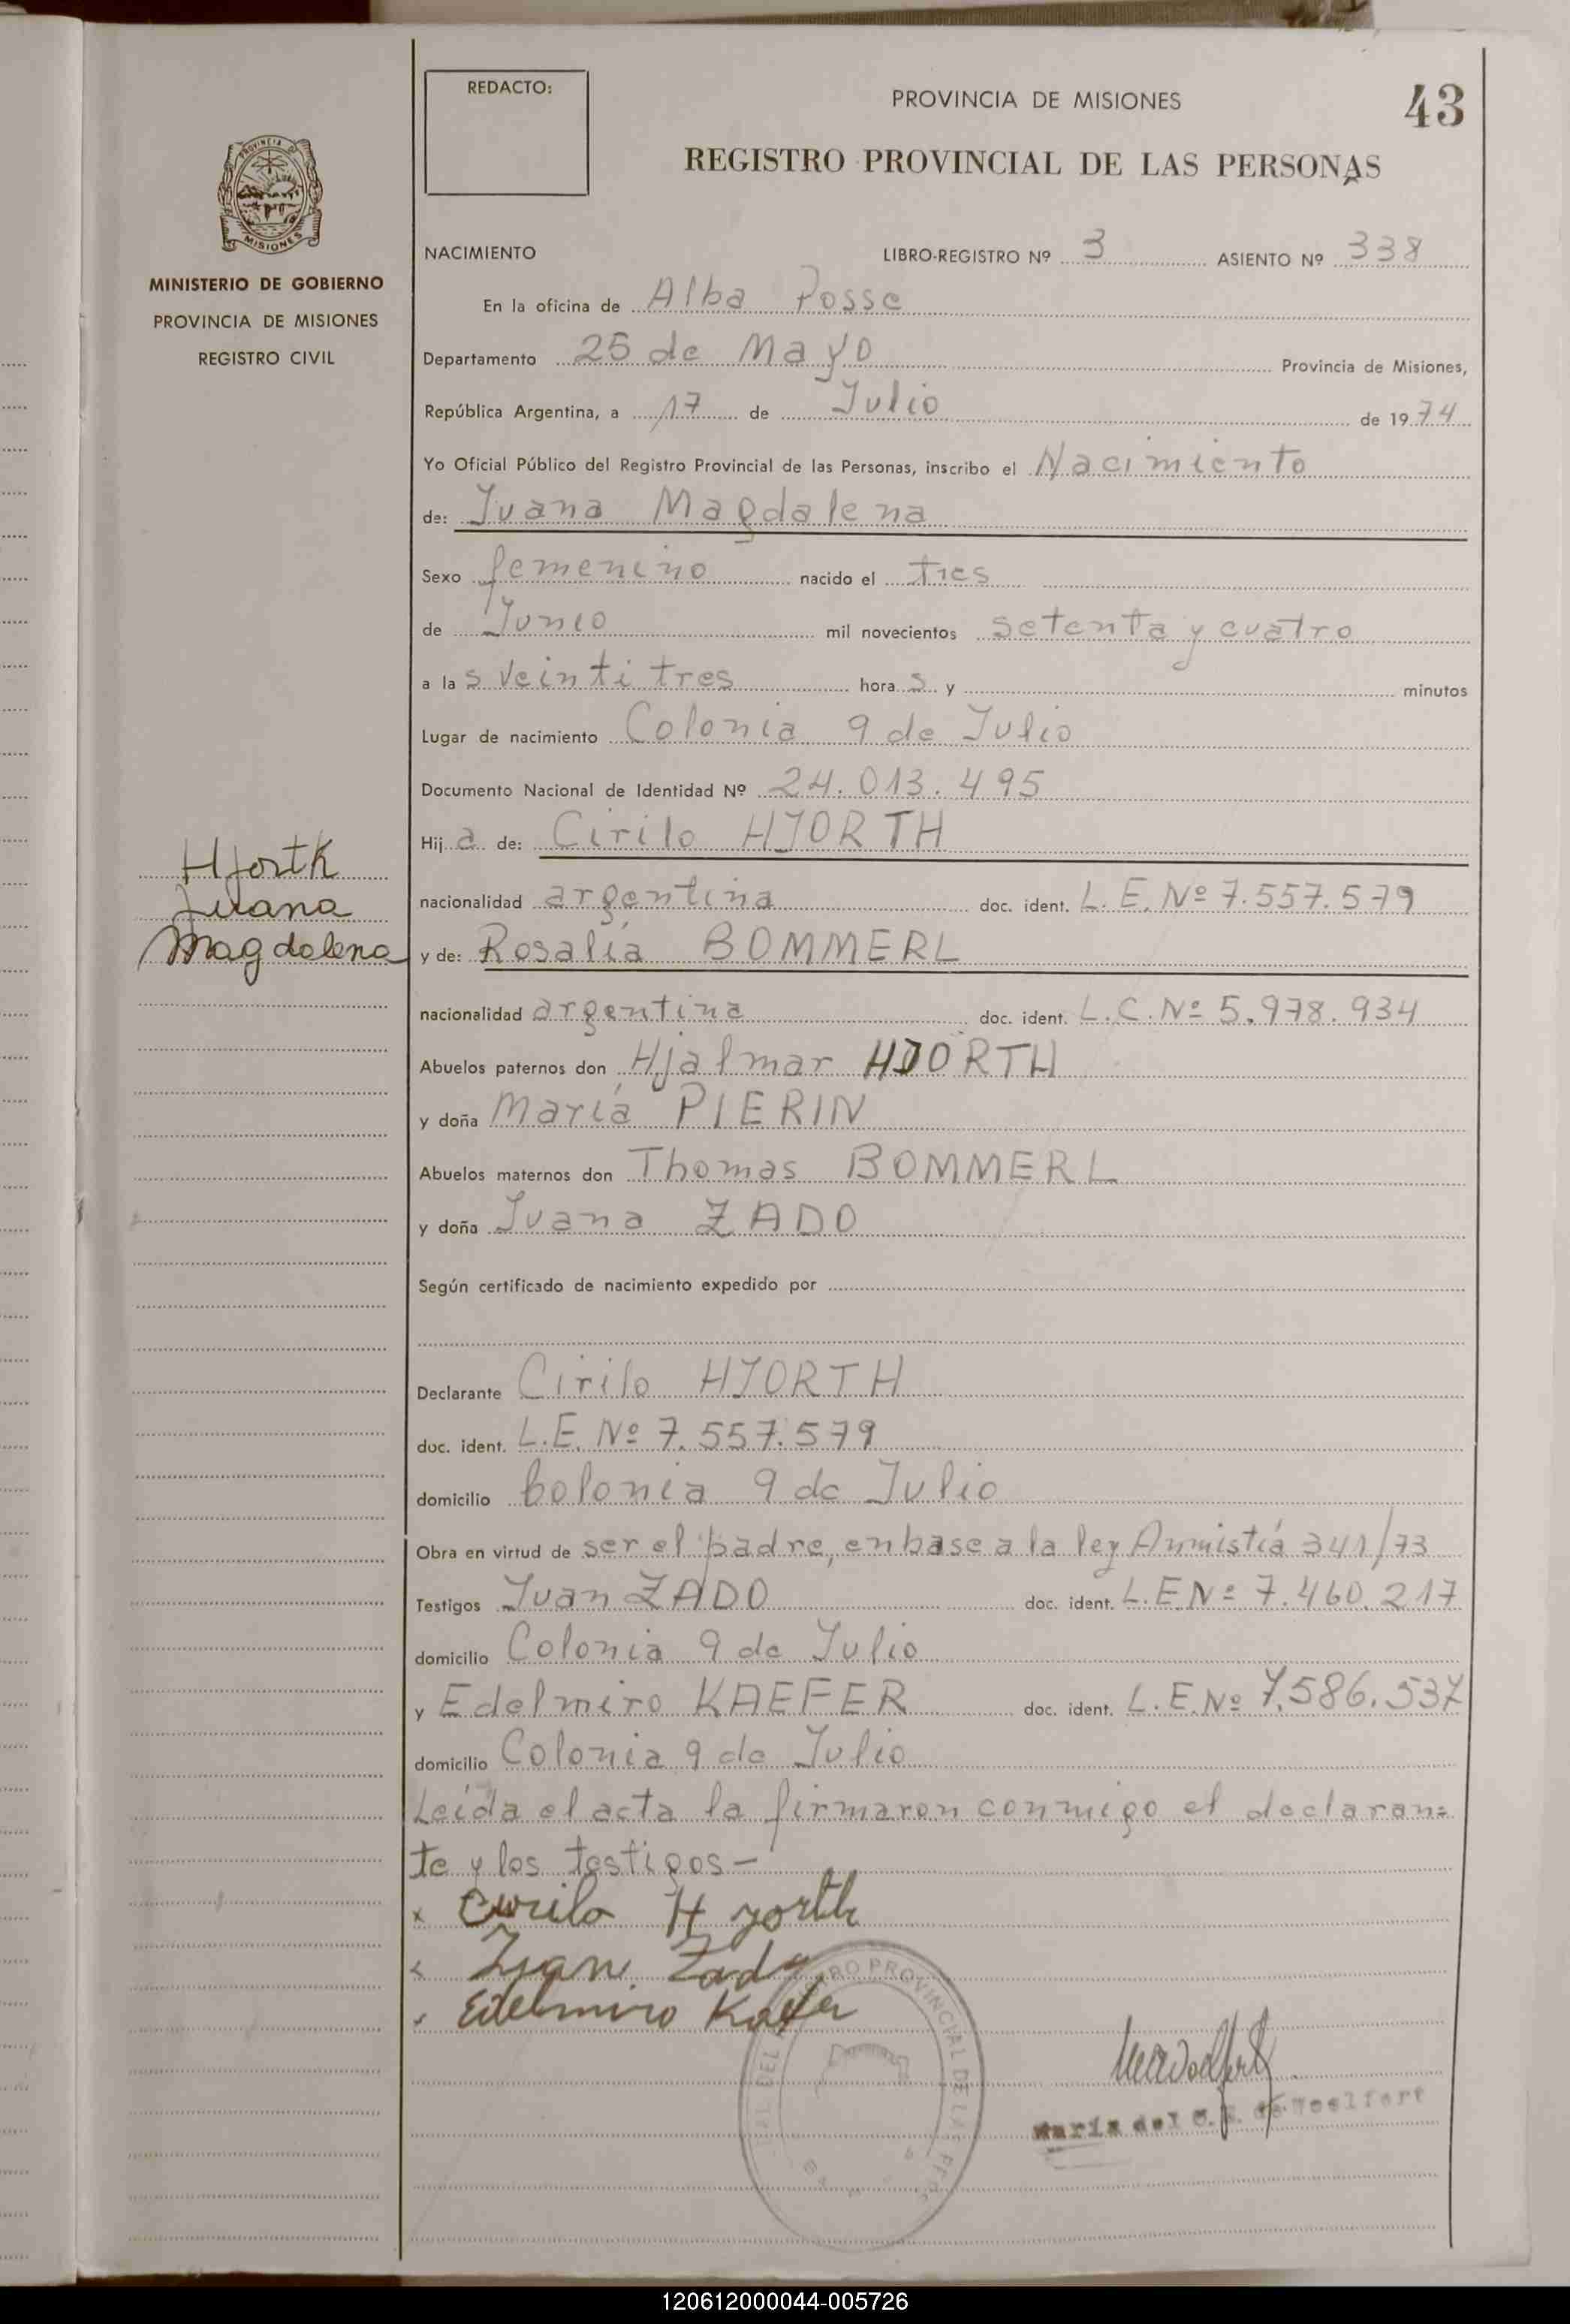 REDACTO:
PROVINCIA DE MISIONES
43
REGISTRO PROVINCIAL DE LAS PERSONAS
PROVINCIA D
MISIONES
MINISTERIO DE GOBIERNO
PROVINCIA DE MISIONES
REGISTRO CIVIL
NACIMIENTO LIBRO-REGISTRO Nº 3 ASIENTO Nº 338
En la oficina de Alba Posse
Departamento 25 de Mayo Provincia de Misiones,
República Argentina, a 17 de Julio de 1974
Yo Oficial Público del Registro Provincial de las Personas, inscribo el Nacimiento
de: Juana Magdalena
Sexo femenino nacido el tres
de Junio mil novecientos setenta y cuatro
a las veintitres horas y minutos
Lugar de nacimiento Colonia 9 de Julio
Documento Nacional de Identidad Nº 24.013.495
Hija de: Cirilo HJORTH
Hjorth
Juana
Magdalena
nacionalidad argentina doc. ident. L.E. Nº 7.557.579
y de: Rosalía BOMMERL
nacionalidad argentina doc. ident. L.C. Nº 5.978.934
Abuelos paternos don Hjalmar HJORTH
y doña María PIERIN
Abuelos maternos don Thomas BOMMERL
y doña Juana ZADO
Según certificado de nacimiento expedido por
Declarante Cirilo HJORTH
doc. ident. L.E. Nº 7.557.579
domicilio Colonia 9 de Julio
Obra en virtud de ser el padre, en base a la ley Amnistía 341/73
Testigos Juan ZADO doc. ident. L.E Nº 7.460.217
domicilio Colonia 9 de Julio
y Edelmiro KAEFER doc. ident. L.E. Nº 7.586.537
domicilio Colonia 9 de Julio
Leída el acta la firmaron conmigo el declaran=
te y los testigos -
x Cirilo Hyorth
x Juan Zado
x Edelmiro Kaefer
PROVINCIAL DE LAS
María del C. de Woelfert
120612000044-005726